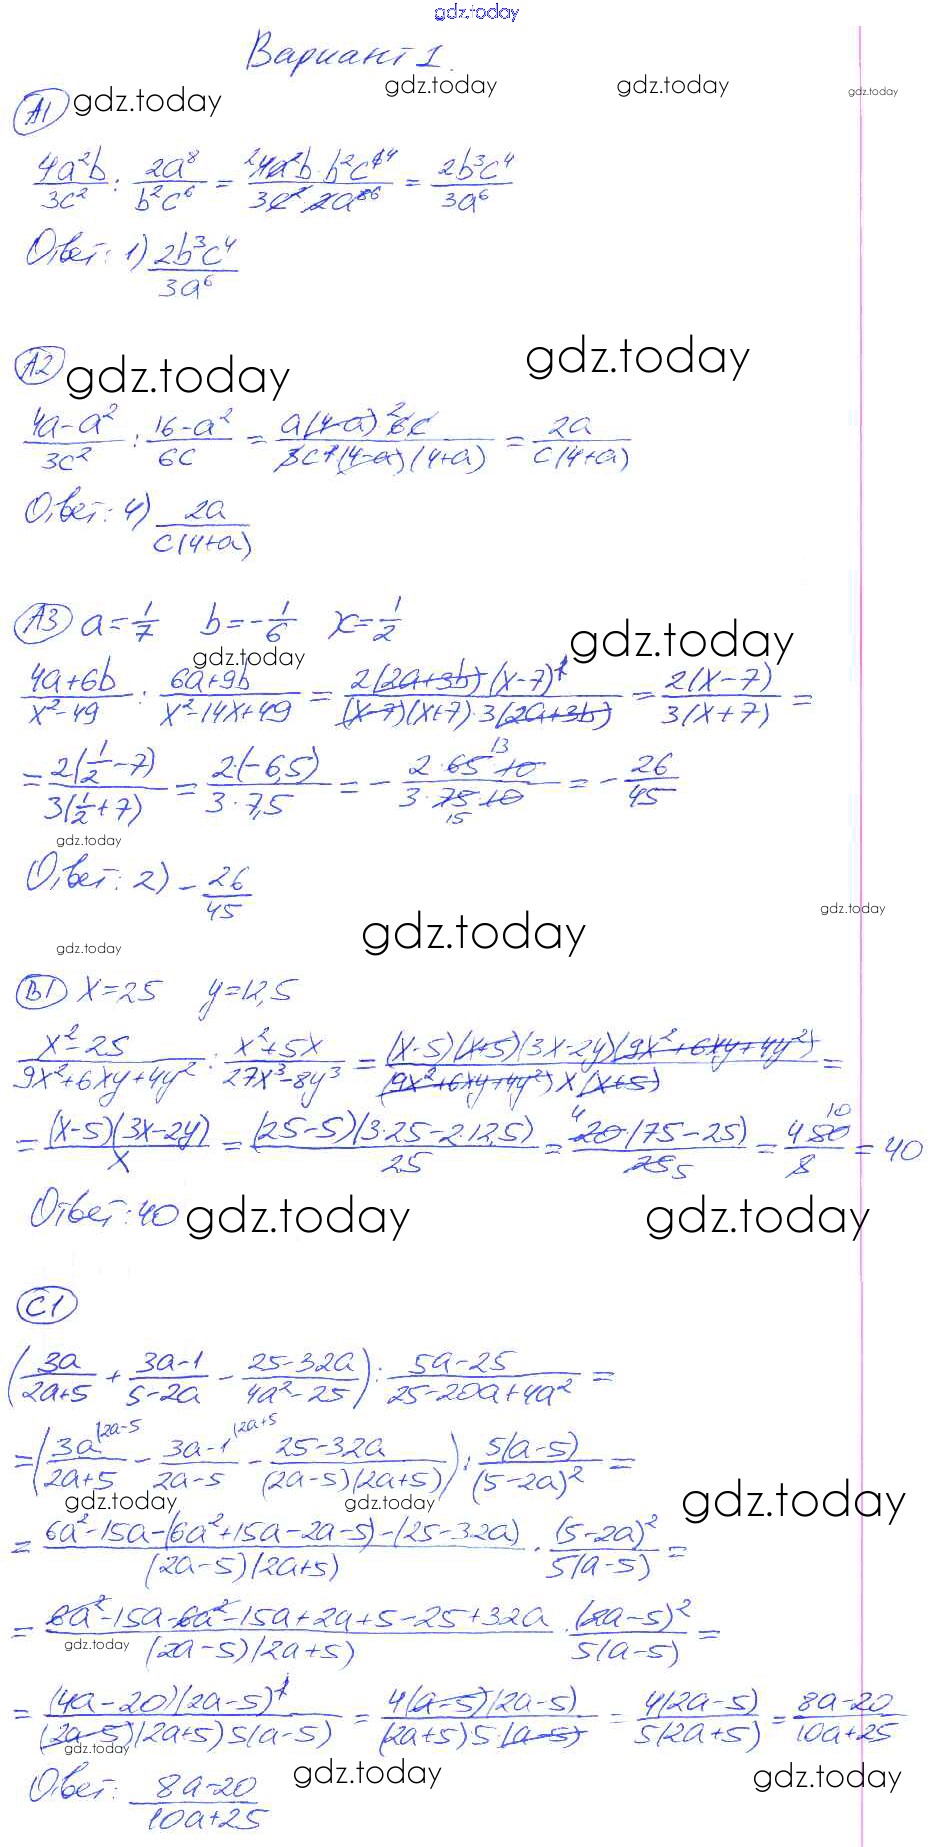 gdz.today
Вариант 1.
A1 gdz.today gdz.today gdz.today gdz.today
4a²b/3c² : 2a⁸/b²c⁶ = 4a²b·b²c⁶/3c²·2a⁸ = 2b³c⁴/3a⁶
Ответ: 1) 2b³c⁴/3a⁶
A2 gdz.today gdz.today
4a-a²/3c² : 16-a²/6c = a(4-a)6c/3c²(4-a)(4+a) = 2a/c(4+a)
Ответ: 4) 2a/c(4+a)
A3 a=1/7 b=-1/6 x=1/2 gdz.today
gdz.today
4a+6b/x²-49 : 6a+9b/x²-14x+49 = 2(2a+3b)(x-7)²/(x-7)(x+7)·3(2a+3b) = 2(x-7)/3(x+7) =
= 2(1/2-7)/3(1/2+7) = 2·(-6,5)/3·7,5 = - 2·65·10/3·75·10 = - 26/45
gdz.today
Ответ: 2) - 26/45
gdz.today
gdz.today gdz.today
B1 x=25 y=12,5
x²-25/9x²+6xy+4y² : x²+5x/27x³-8y³ = (x-5)(x+5)(3x-2y)(9x²+6xy+4y²)/(9x²+6xy+4y²)x(x+5) =
= (x-5)(3x-2y)/x = (25-5)(3·25-2·12,5)/25 = 20·(75-25)/25 = 4·50/5 = 40
Ответ: 40 gdz.today gdz.today
C1
(3a/2a+5 + 3a-1/5-2a - 25-32a/4a²-25) : 5a-25/25-20a+4a² =
= (3a/2a+5 - 3a-1/2a-5 - 25-32a/(2a-5)(2a+5)) : 5(a-5)/(5-2a)² =
gdz.today gdz.today gdz.today
= 6a²-15a-(6a²+15a-2a-5)-(25-32a)/(2a-5)(2a+5) · (5-2a)²/5(a-5) =
= 6a²-15a-6a²-15a+2a+5-25+32a/(2a-5)(2a+5) · (2a-5)²/5(a-5) =
gdz.today
= (4a-20)(2a-5)²/(2a-5)(2a+5)5(a-5) = 4(a-5)(2a-5)/(2a+5)5·(a-5) = 4(2a-5)/5(2a+5) = 8a-20/10a+25
gdz.today
Ответ: 8a-20/10a+25 gdz.today gdz.today